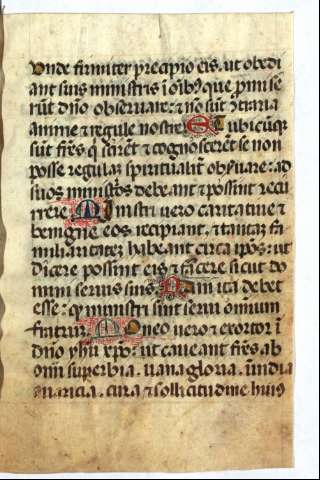 Unde firmiter precipio eis. ut obedi
ant suis ministris ī oīb; que promise
rūt dño observare: et nō sūt ɔtraria
anime et regule nostre. Et ubicūq;
sūt frēs q̄ scirēt et cognoscerēt se non
posse regulaʒ spiritualit̄ obs̄uare: ad
suos ministros debeant et possint recu
rrere. Ministri uero caritatiue et
benigne eos recipiant. et tantaʒ fa
miliaritateʒ habeant circa ipos: ut
dicere possint eis et facere sicut do
mini seruis suis. Nam ita debet
esse: q̛ ministri sint serui omnium
fratrum. Moneo uero et exortor ī
dño yhū xp̄o: ut caueant frēs ab
omī superbia. uana gloria. inuidia
auaricia. cura et sollicitudine huiꝰ